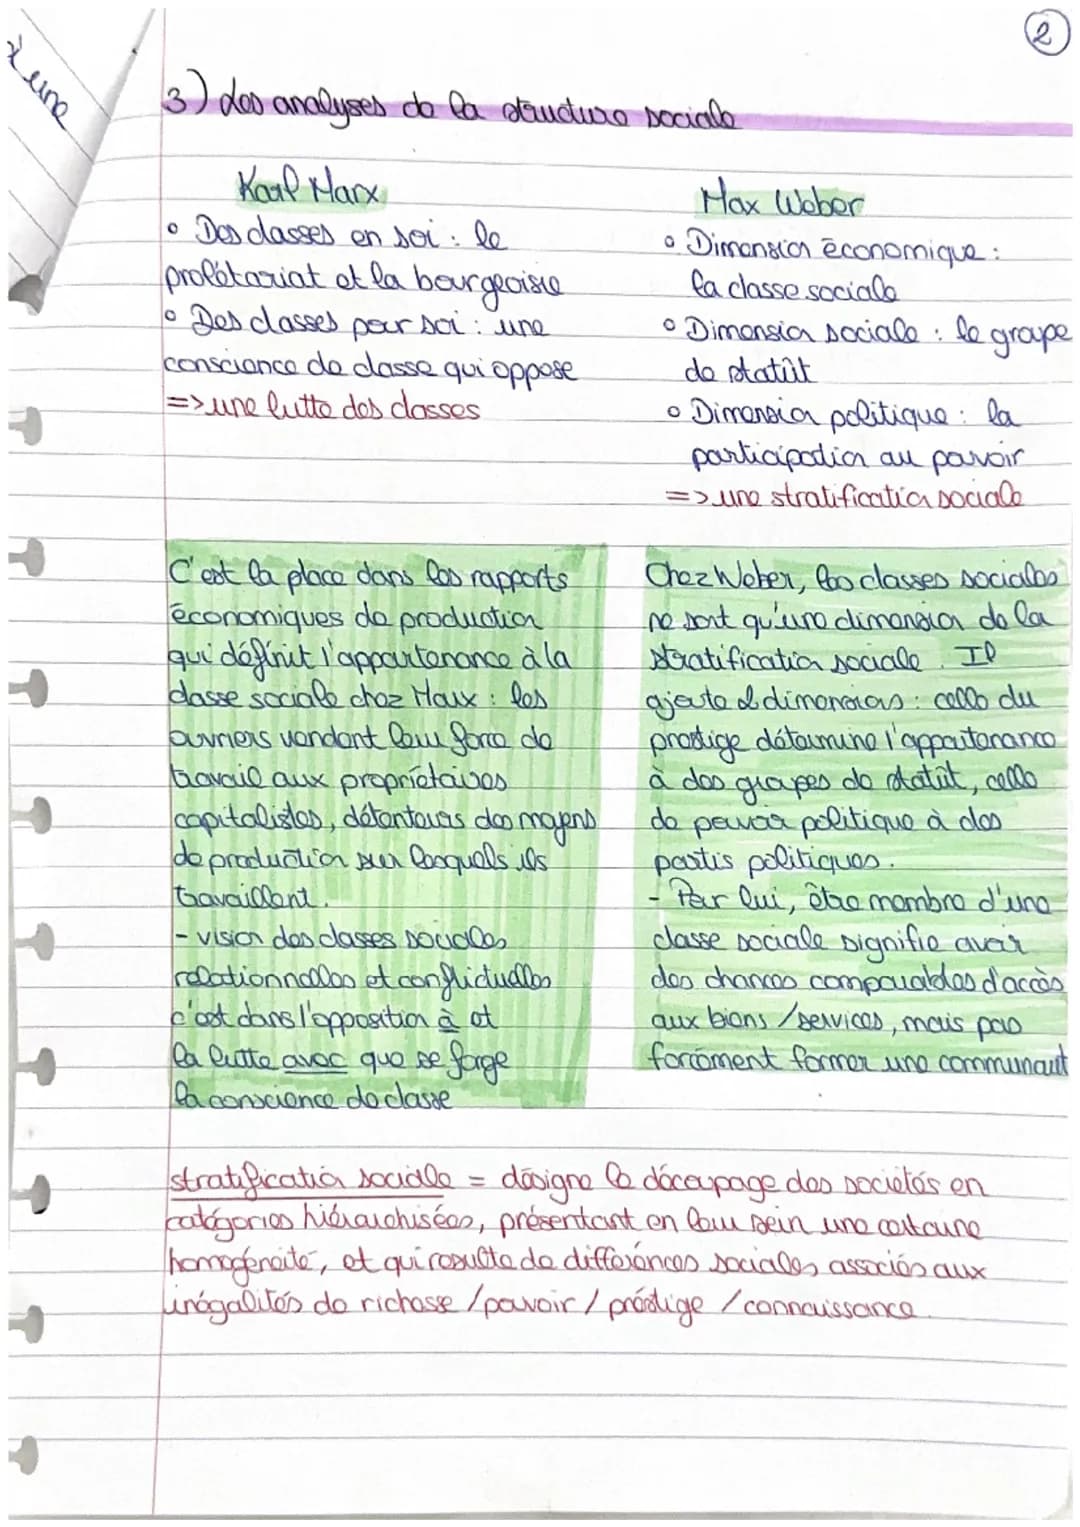 2
d'une
3) les analyses de la structure sociale
Karl Marx
• Des classes en soi : le
prolétariat et la bourgeoisie
• Des classes pour soi : une
conscience de classe qui oppose
=> une lutte des classes
Max Weber
• Dimension économique :
la classe sociale
• Dimension sociale : le groupe
de statût
• Dimension politique : la
participation au pouvoir
=> une stratification sociale
C'est la place dans les rapports
économiques de production
qui définit l'appartenance à la
classe sociale chez Marx : les
ouvriers vendent leur force de
travail aux propriétaires
capitalistes, détenteurs des moyens
de production sur lesquels ils
travaillent.
- vision des classes sociales
relationnelles et conflictuelles
c'est dans l'opposition à et
la lutte avec que se forge
la conscience de classe
Chez Weber, les classes sociales
ne sont qu'une dimension de la
stratification sociale. Il
ajoute 2 dimensions : celle du
prestige détermine l'appartenance
à des groupes de statût, celle
de pouvoir politique à des
partis politiques.
- Pour lui, être membre d'une
classe sociale signifie avoir
des chances comparables d'accès
aux biens / services, mais pas
forcément former une communaut
stratification sociale = désigne le découpage des sociétés en
catégories hiérarchisées, présentant en leur sein une certaine
homogénéité, et qui resulte de différences sociales associés aux
inégalités de richesse / pouvoir / prestige / connaissance.